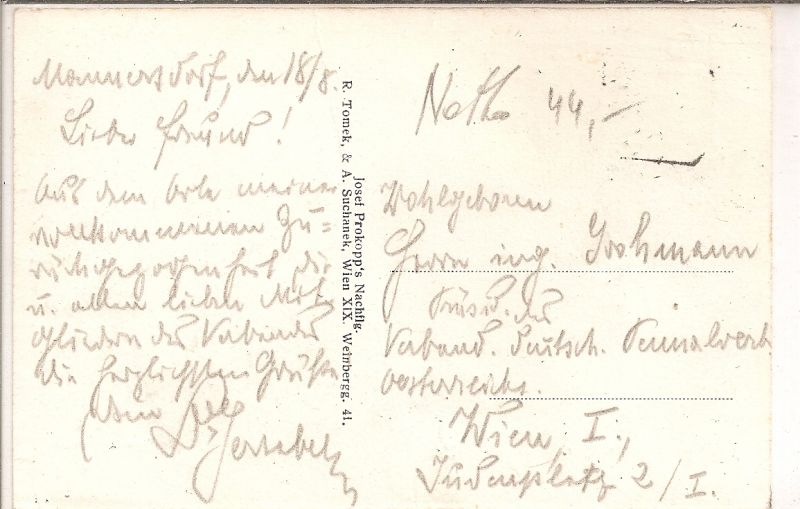 Mannersdorf, den 18/8.
Lieber Freund!
Aus dem Orte meiner
vollkommenen Zu=
rückgezogenheit Dir
u. allen lieben Mit-
gliedern des Verbandes
die herzlichsten Grüße
Dein
Josef Prokopp's Nachflg.
R. Tomek, & A. Suchanek, Wien XIX. Weinbergg. 41.
44,-
Wohlgeboren
Herrn ing.
Präsid. des
Verband. deutsch.
Oesterreichs.
Wien I.,
Judenplatz 2/I.